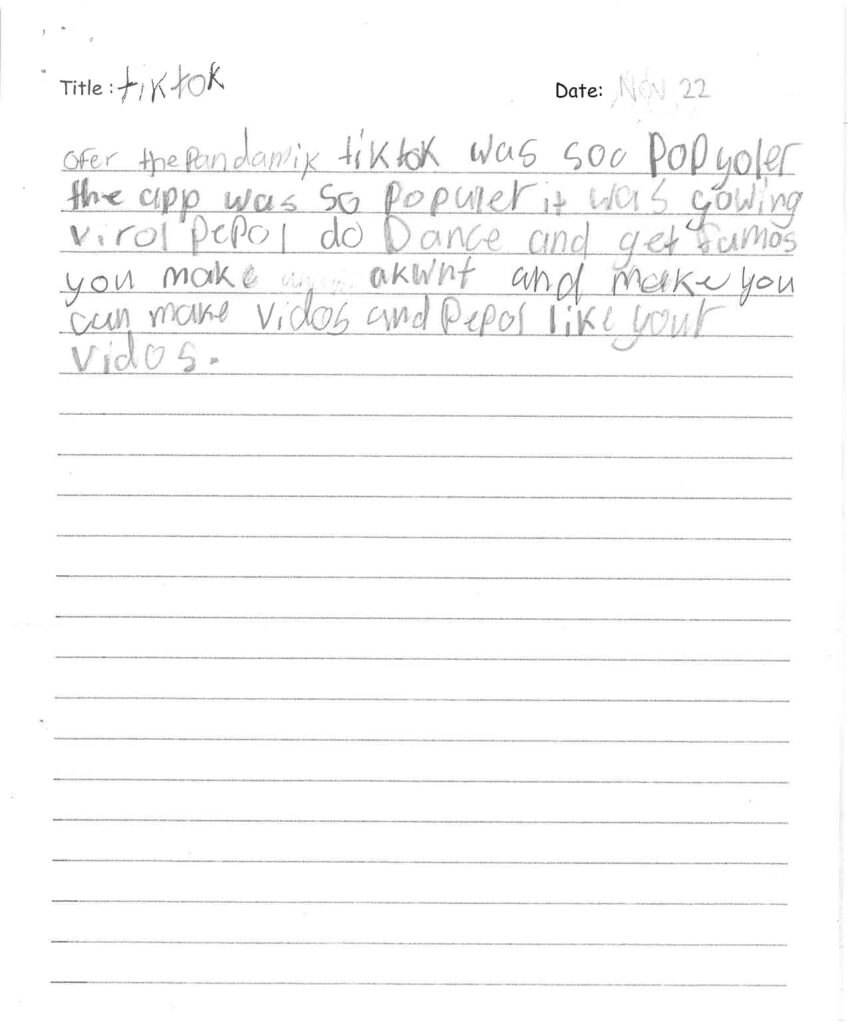 Title : tiktok
Date: Nov 22
ofer the Pandamik tiktok was soo Popyoler
the app was so Populer it was gowing
virol pepol do Dance and get famos
you make akwnt and make you
can make vidos and Pepol like your
vidos.